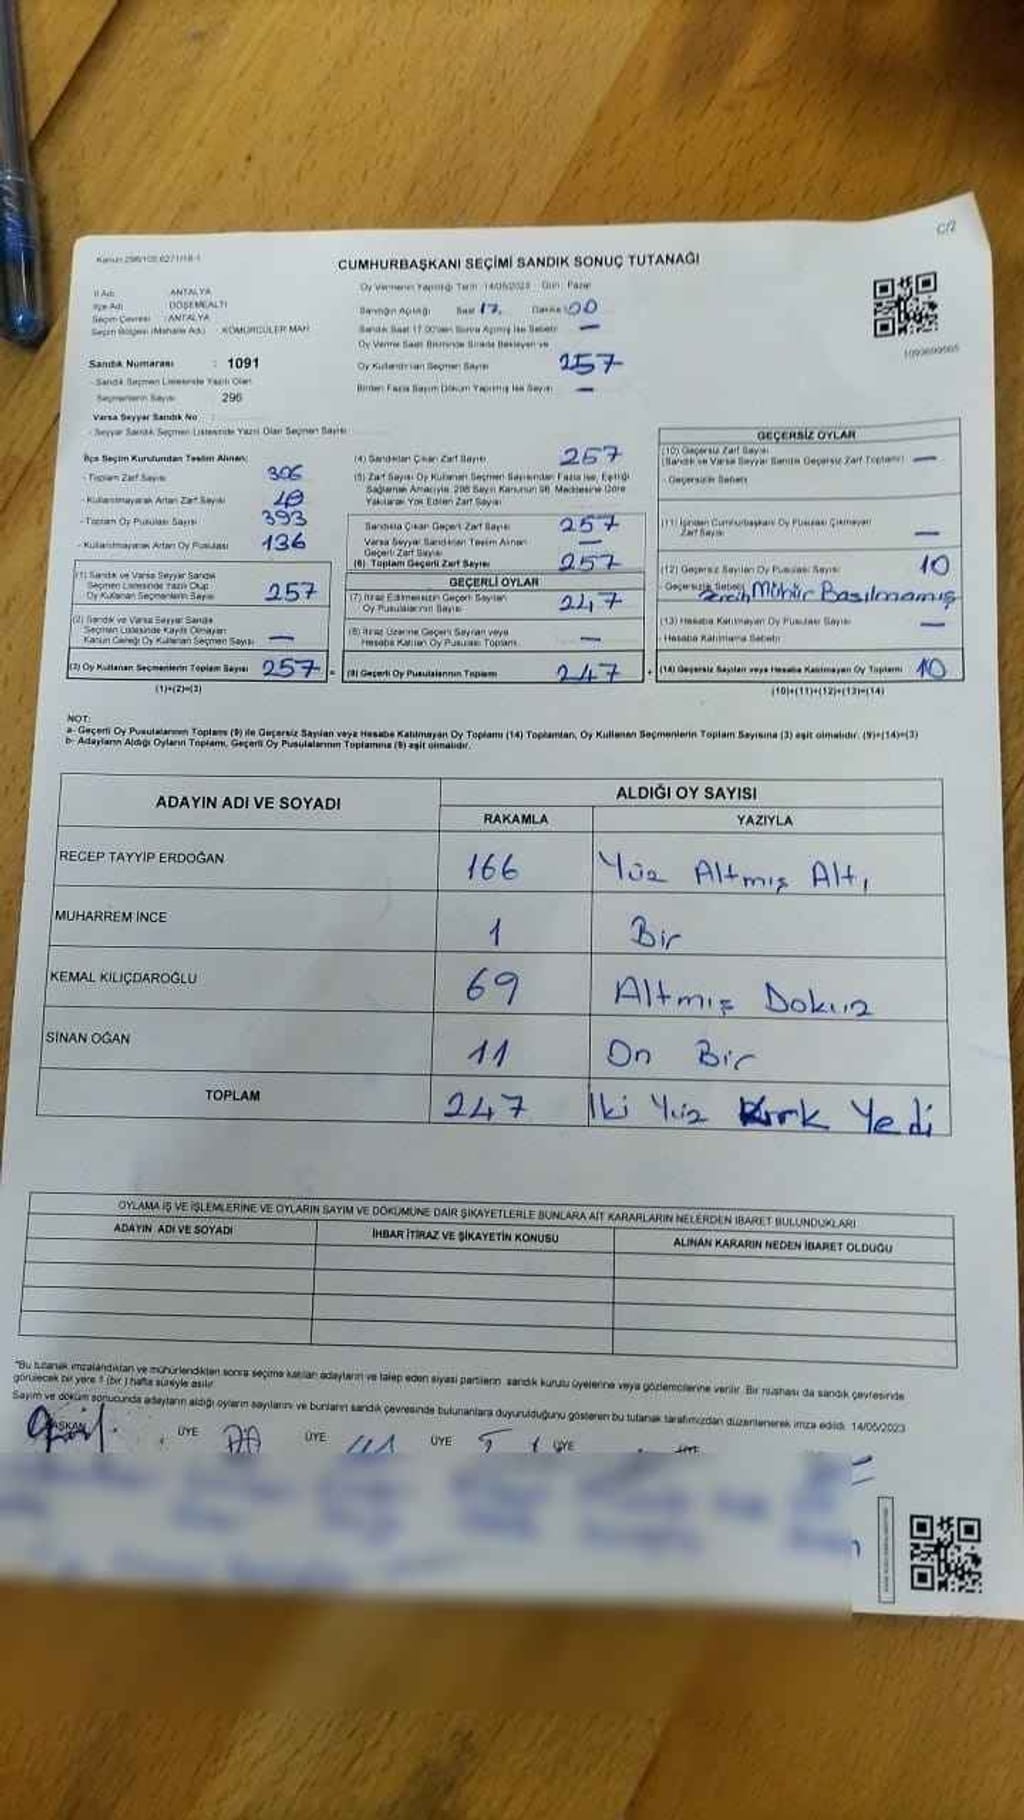 C/2
CUMHURBAŞKANI SEÇİMİ SANDIK SONUÇ TUTANAĞI
İl Adı : ANTALYA
İlçe Adı : DÖŞEMEALTI
Seçim Çevresi : ANTALYA
Seçim Bölgesi (Mahalle Adı) : KÖMÜRCÜLER MAH
Sandık Numarası : 1091
- Sandık Seçmen Listesinde Yazılı Olan
Seçmenlerin Sayısı 296
Varsa Seyyar Sandık No :
- Seyyar Sandık Seçmen Listesinde Yazılı Olan Seçmen Sayısı
Oy Vermenin Yapıldığı Tarih 14/05/2023 Gün: Pazar
Sandığın Açıldığı Saat 17. Dakika 00
Sandık Saat 17.00'den Sonra Açılmış İse Sebebi —
Oy Verme Saati Bitiminde Sırada Bekleyen ve
Oy Kullandırılan Seçmen Sayısı 257
Birden Fazla Sayım Döküm Yapılmış İse Sayısı —
İlçe Seçim Kurulundan Teslim Alınan;
- Toplam Zarf Sayısı 306
- Kullanılmayarak Artan Zarf Sayısı
- Toplam Oy Pusulası Sayısı 393
- Kullanılmayarak Artan Oy Pusulası 136
(1) Sandık ve Varsa Seyyar Sandık
Seçmen Listesinde Yazılı Olup
Oy Kullanan Seçmenlerin Sayısı 257
(2) Sandık ve Varsa Seyyar Sandık
Seçmen Listesinde Kayıtlı Olmayan
Kanun Gereği Oy Kullanan Seçmen Sayısı —
(3) Oy Kullanan Seçmenlerin Toplam Sayısı 257
(1)+(2)=(3)
(4) Sandıktan Çıkan Zarf Sayısı 257
(5) Zarf Sayısı Oy Kullanan Seçmen Sayısından Fazla İse, Eşitliği
Sağlamak Amacıyla, 298 Sayılı Kanunun 98. Maddesine Göre
Yakılarak Yok Edilen Zarf Sayısı
Sandıkta Çıkan Geçerli Zarf Sayısı 257
Varsa Seyyar Sandıktan Teslim Alınan
Geçerli Zarf Sayısı —
(6) Toplam Geçerli Zarf Sayısı 257
GEÇERLİ OYLAR
(7) İtiraz Edilmeksizin Geçerli Sayılan
Oy Pusulalarının Sayısı 247
(8) İtiraz Üzerine Geçerli Sayılan veya
Hesaba Katılan Oy Pusulası Toplamı —
(9) Geçerli Oy Pusulalarının Toplamı 247
GEÇERSİZ OYLAR
(10) Geçersiz Zarf Sayısı
(Sandık ve Varsa Seyyar Sandık Geçersiz Zarf Toplamı) —
- Geçersizlik Sebebi
(11) İçinden Cumhurbaşkanı Oy Pusulası Çıkmayan
Zarf Sayısı —
(12) Geçersiz Sayılan Oy Pusulası Sayısı 10
- Geçersizlik Sebebi Tercih Mühür Basılmamış
(13) Hesaba Katılmayan Oy Pusulası Sayısı —
- Hesaba Katılmama Sebebi
(14) Geçersiz Sayılan veya Hesaba Katılmayan Oy Toplamı 10
(10)+(11)+(12)+(13)=(14)
NOT:
a- Geçerli Oy Pusulalarının Toplamı (9) ile Geçersiz Sayılan veya Hesaba Katılmayan Oy Toplamı (14) Toplamları, Oy Kullanan Seçmenlerin Toplam Sayısına (3) eşit olmalıdır. (9)+(14)=(3)
b- Adayların Aldığı Oyların Toplamı, Geçerli Oy Pusulalarının Toplamına (9) eşit olmalıdır.
ADAYIN ADI VE SOYADI ALDIĞI OY SAYISI
RAKAMLA YAZIYLA
RECEP TAYYİP ERDOĞAN 166 Yüz Altmış Altı
MUHARREM İNCE 1 Bir
KEMAL KILIÇDAROĞLU 69 Altmış Dokuz
SİNAN OĞAN 11 On Bir
TOPLAM 247 İki Yüz Kırk Yedi
OYLAMA İŞ VE İŞLEMLERİNE VE OYLARIN SAYIM VE DÖKÜMÜNE DAİR ŞİKAYETLERLE BUNLARA AİT KARARLARIN NELERDEN İBARET BULUNDUKLARI
ADAYIN ADI VE SOYADI İHBAR İTİRAZ VE ŞİKAYETİN KONUSU ALINAN KARARIN NEDEN İBARET OLDUĞU
"Bu tutanak imzalandıktan ve mühürlendikten sonra seçime katılan adayların ve talep eden siyasi partilerin sandık kurulu üyelerine veya gözlemcilerine verilir. Bir nüshası da sandık çevresinde
görülecek bir yere 1 (bir) hafta süreyle asılır.
Sayım ve döküm sonucunda adayların aldığı oyların sayılarını ve bunların sandık çevresinde bulunanlara duyurulduğunu gösteren bu tutanak tarafımızdan düzenlenerek imza edildi. 14/05/2023
BAŞKAN ÜYE ÜYE ÜYE ÜYE ÜYE